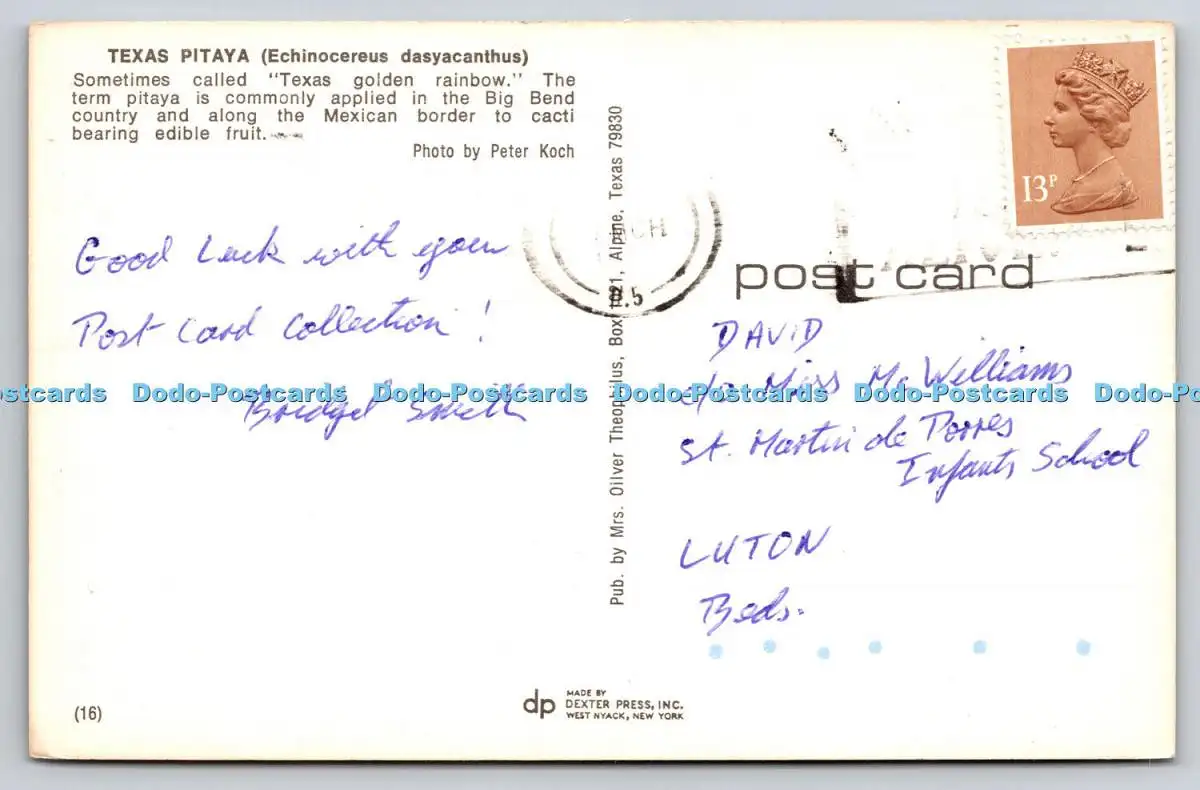 TEXAS PITAYA (Echinocereus dasyacanthus)
Sometimes called "Texas golden rainbow." The
term pitaya is commonly applied in the Big Bend
country and along the Mexican border to cacti
bearing edible fruit.
Photo by Peter Koch
Good Luck with your
Post Card Collection!
Smith
(16)
Pub. by Mrs. Oilver Theophilus, Box 1021, Alpine, Texas 79830
dp
MADE BY
DEXTER PRESS, INC.
WEST NYACK, NEW YORK
13P
post card
DAVID
c/o Miss McWilliams
St. Martin de Porres
Infants School
LUTON
Beds.
Postcards Dodo-Postcards Dodo-Postcards Dodo-Postcards Dodo-Postcards Dodo-Po